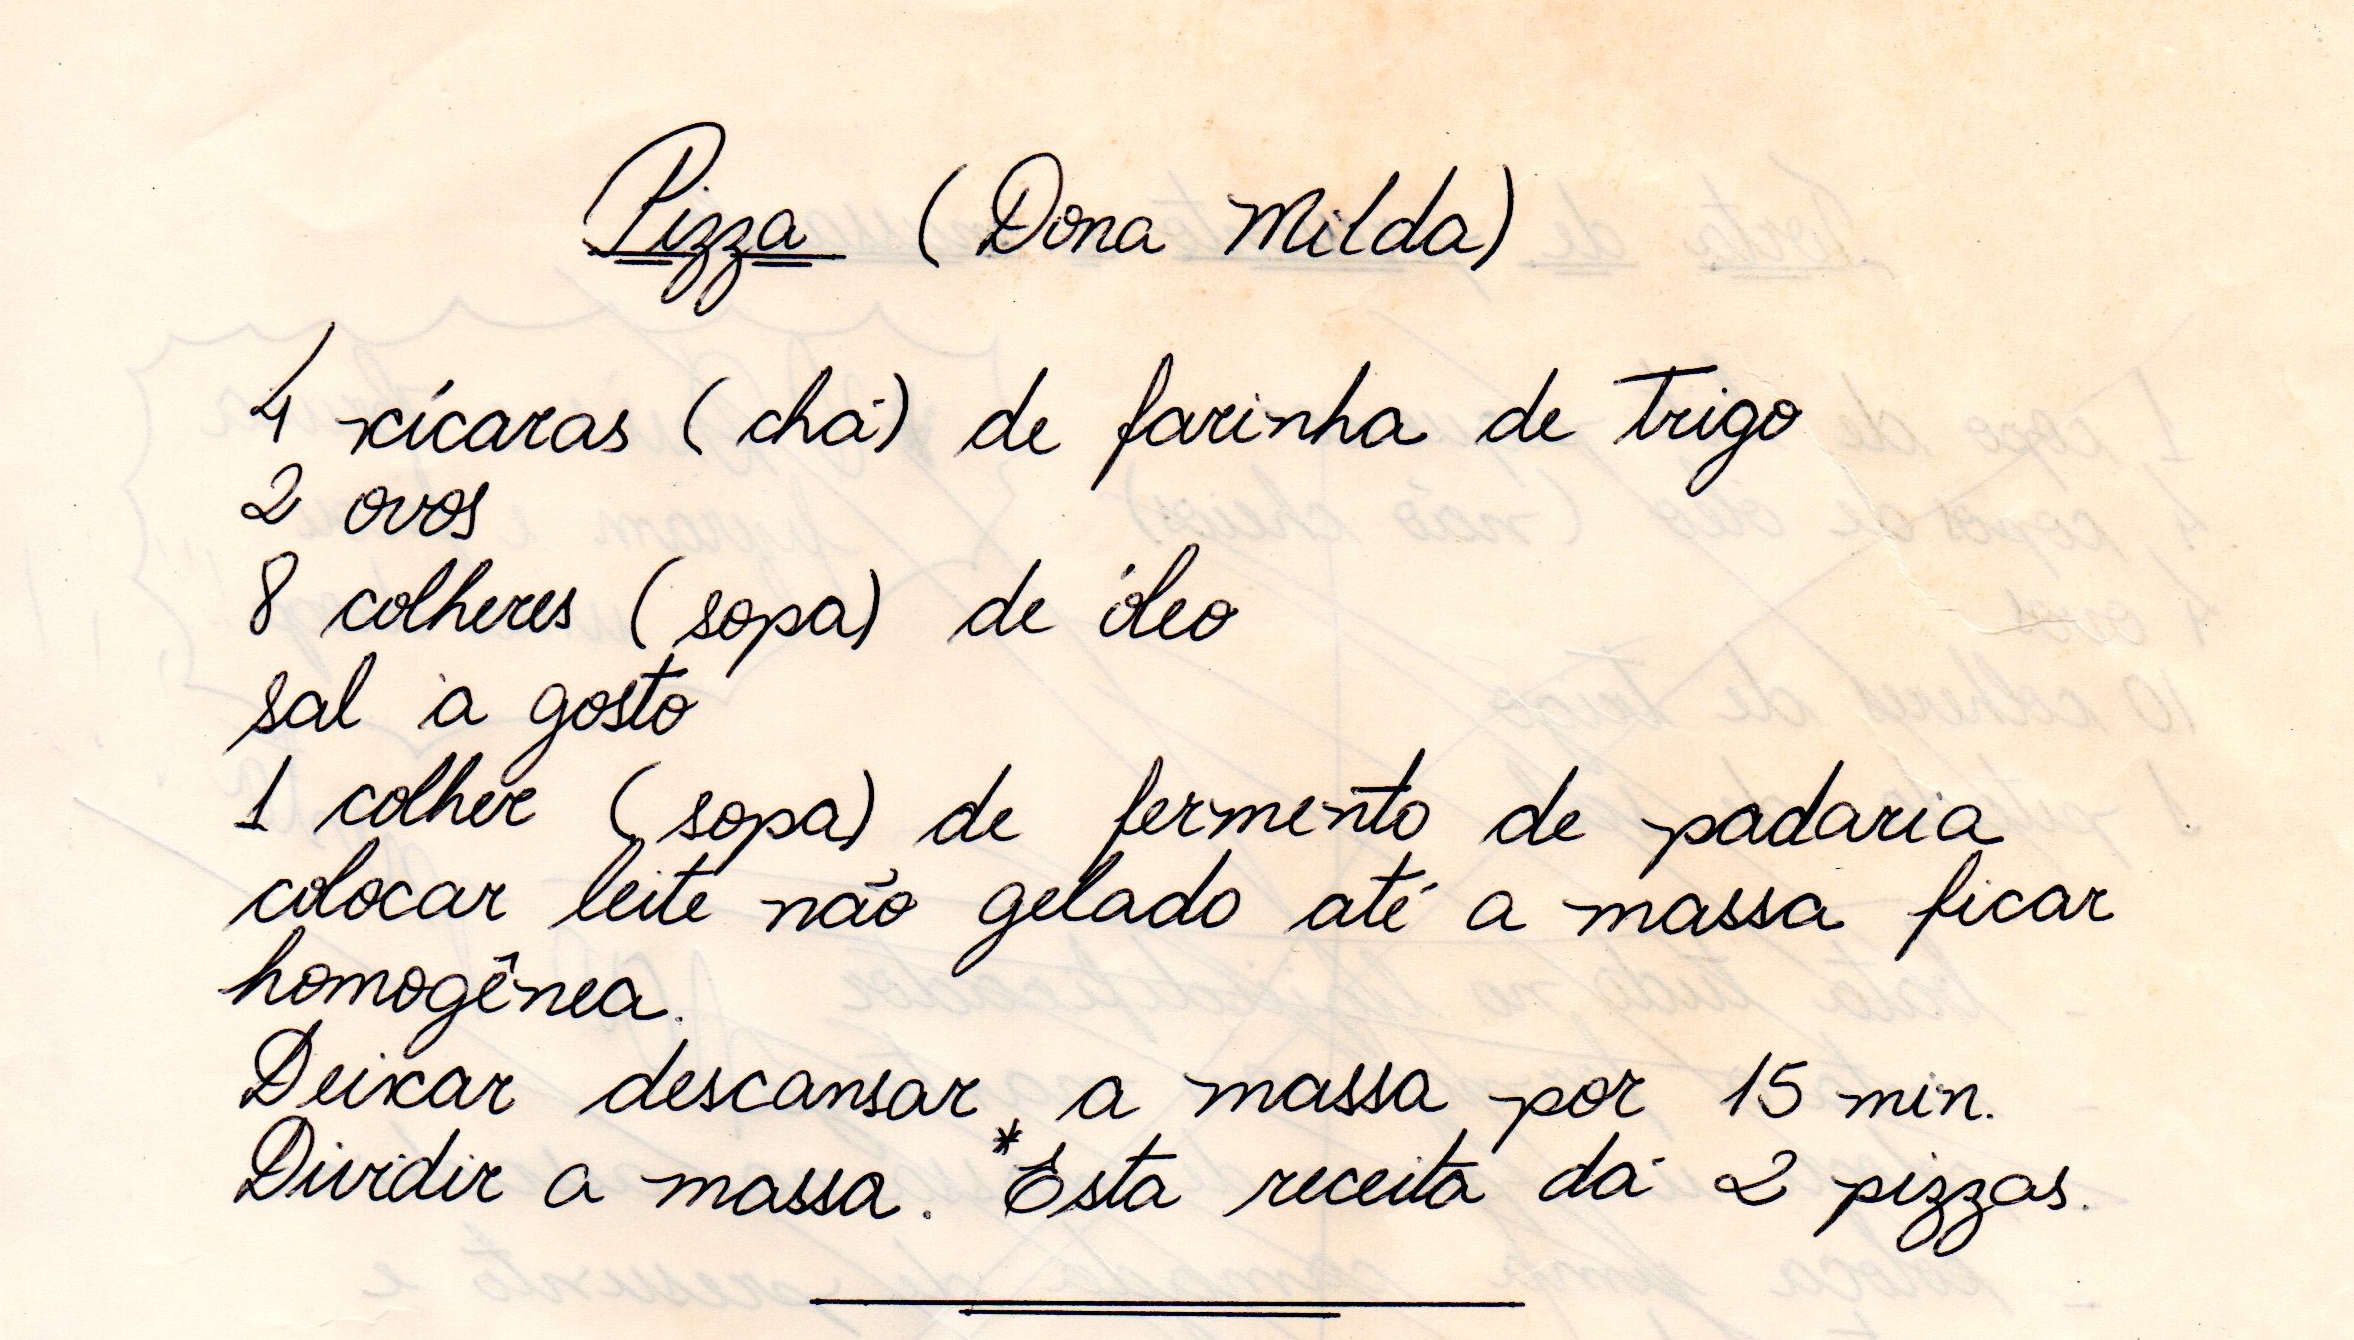 Pizza (Dona Milda)
4 xícaras (chá) de farinha de trigo
2 ovos
8 colheres (sopa) de óleo
sal a gosto
1 colher (sopa) de fermento de padaria
colocar leite não gelado até a massa ficar
homogênea.
Deixar descansar a massa por 15 min.
Dividir a massa. *Esta receita dá 2 pizzas.